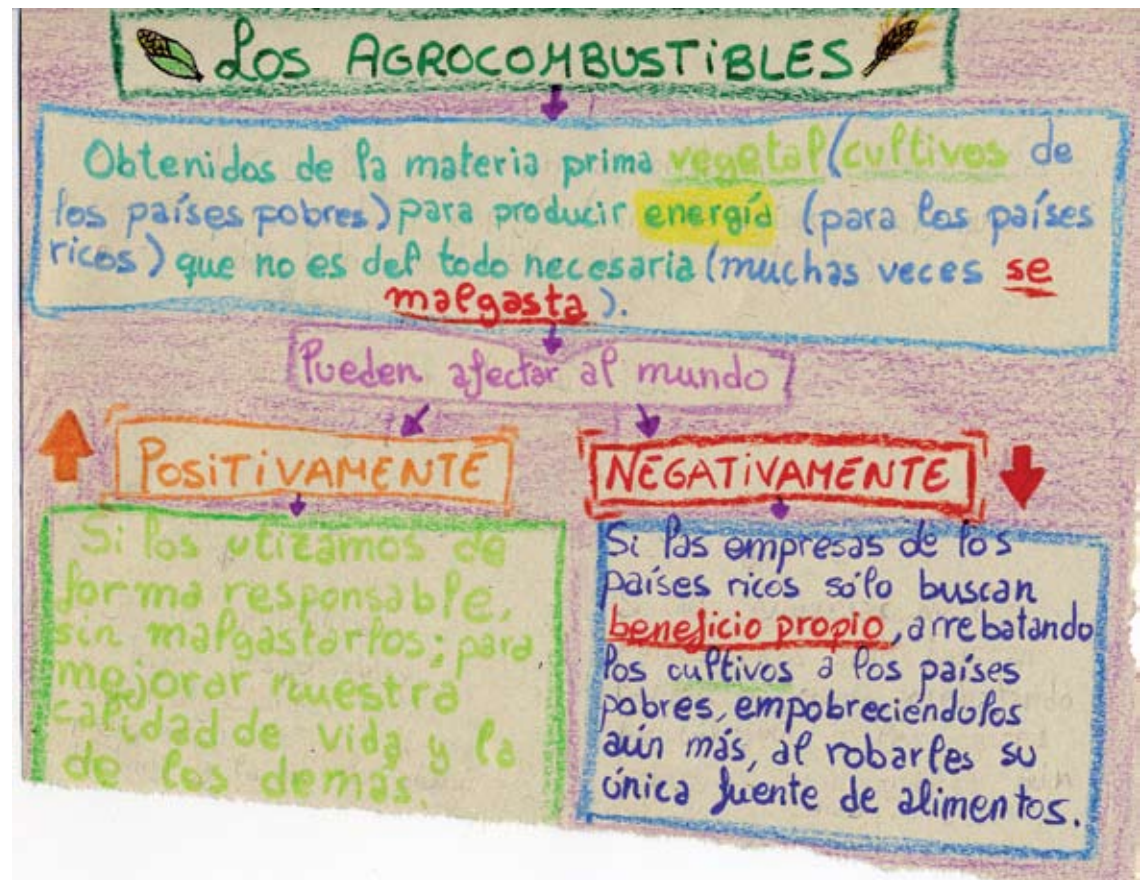 Los AGROCOMBUSTiBLES
Obtenidos de la materia prima vegetal (cultivos de
los países pobres) para producir energía (para los países
ricos) que no es del todo necesaria (muchas veces se
malgasta).
Pueden afectar al mundo
POSiTiVAMENTE
NEGATiVAMENTE
Si los utizamos de
forma responsable,
sin malgastarlos; para
mejorar nuestra
calidad de vida y la
de los demás.
Si las empresas de los
países ricos sólo buscan
beneficio propio, arrebatando
los cultivos a los países
pobres, empobreciéndolos
aún más, al robarles su
única fuente de alimentos.